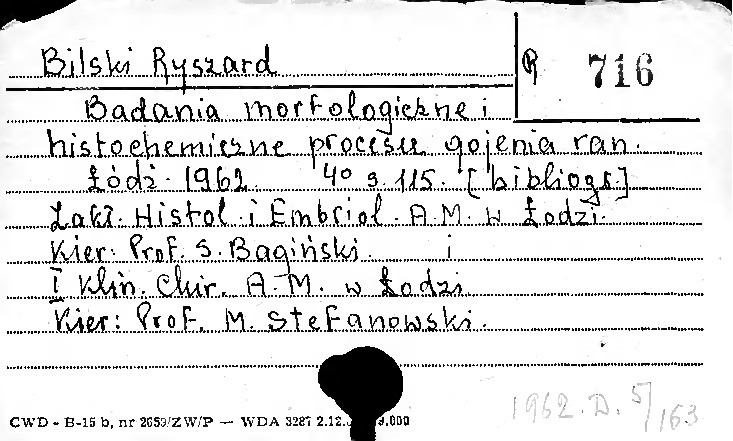 Bilski Ryszard
R 716
Badania morfologiczne i
histochemiczne procesu gojenia ran.
Łódź 1962. 4° s. 115. [bibliogr]
Zakł. Histol. i Embriol. A.M. w Łodzi.
Kier: Prof. S. Bagiński. i
I Klin. Chir. A.M. w Łodzi
Kier: Prof. M. Stefanowski.
1962. D. 5/163
CWD - B-15 b, nr 2659/ZW/P — WDA 3287 2.12.